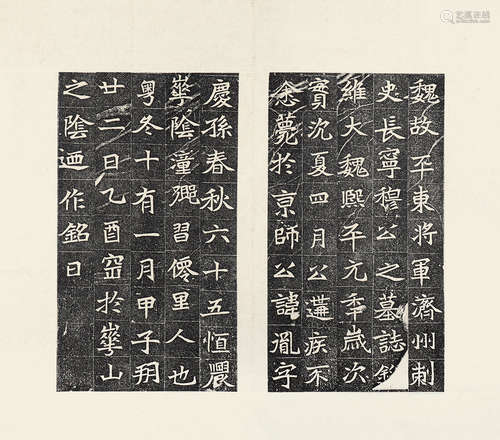 魏故平東將軍濟州刺
史長寧穆公之墓誌銘
維大魏熙平元年歲次
實沈夏四月公遘疾不
悆薨於京師公諱胤字
慶孫春秋六十五恒農
華陰潼鄉習僊里人也
粵冬十有一月甲子朔
廿二日乙酉窆於華山
之陰迺作銘曰